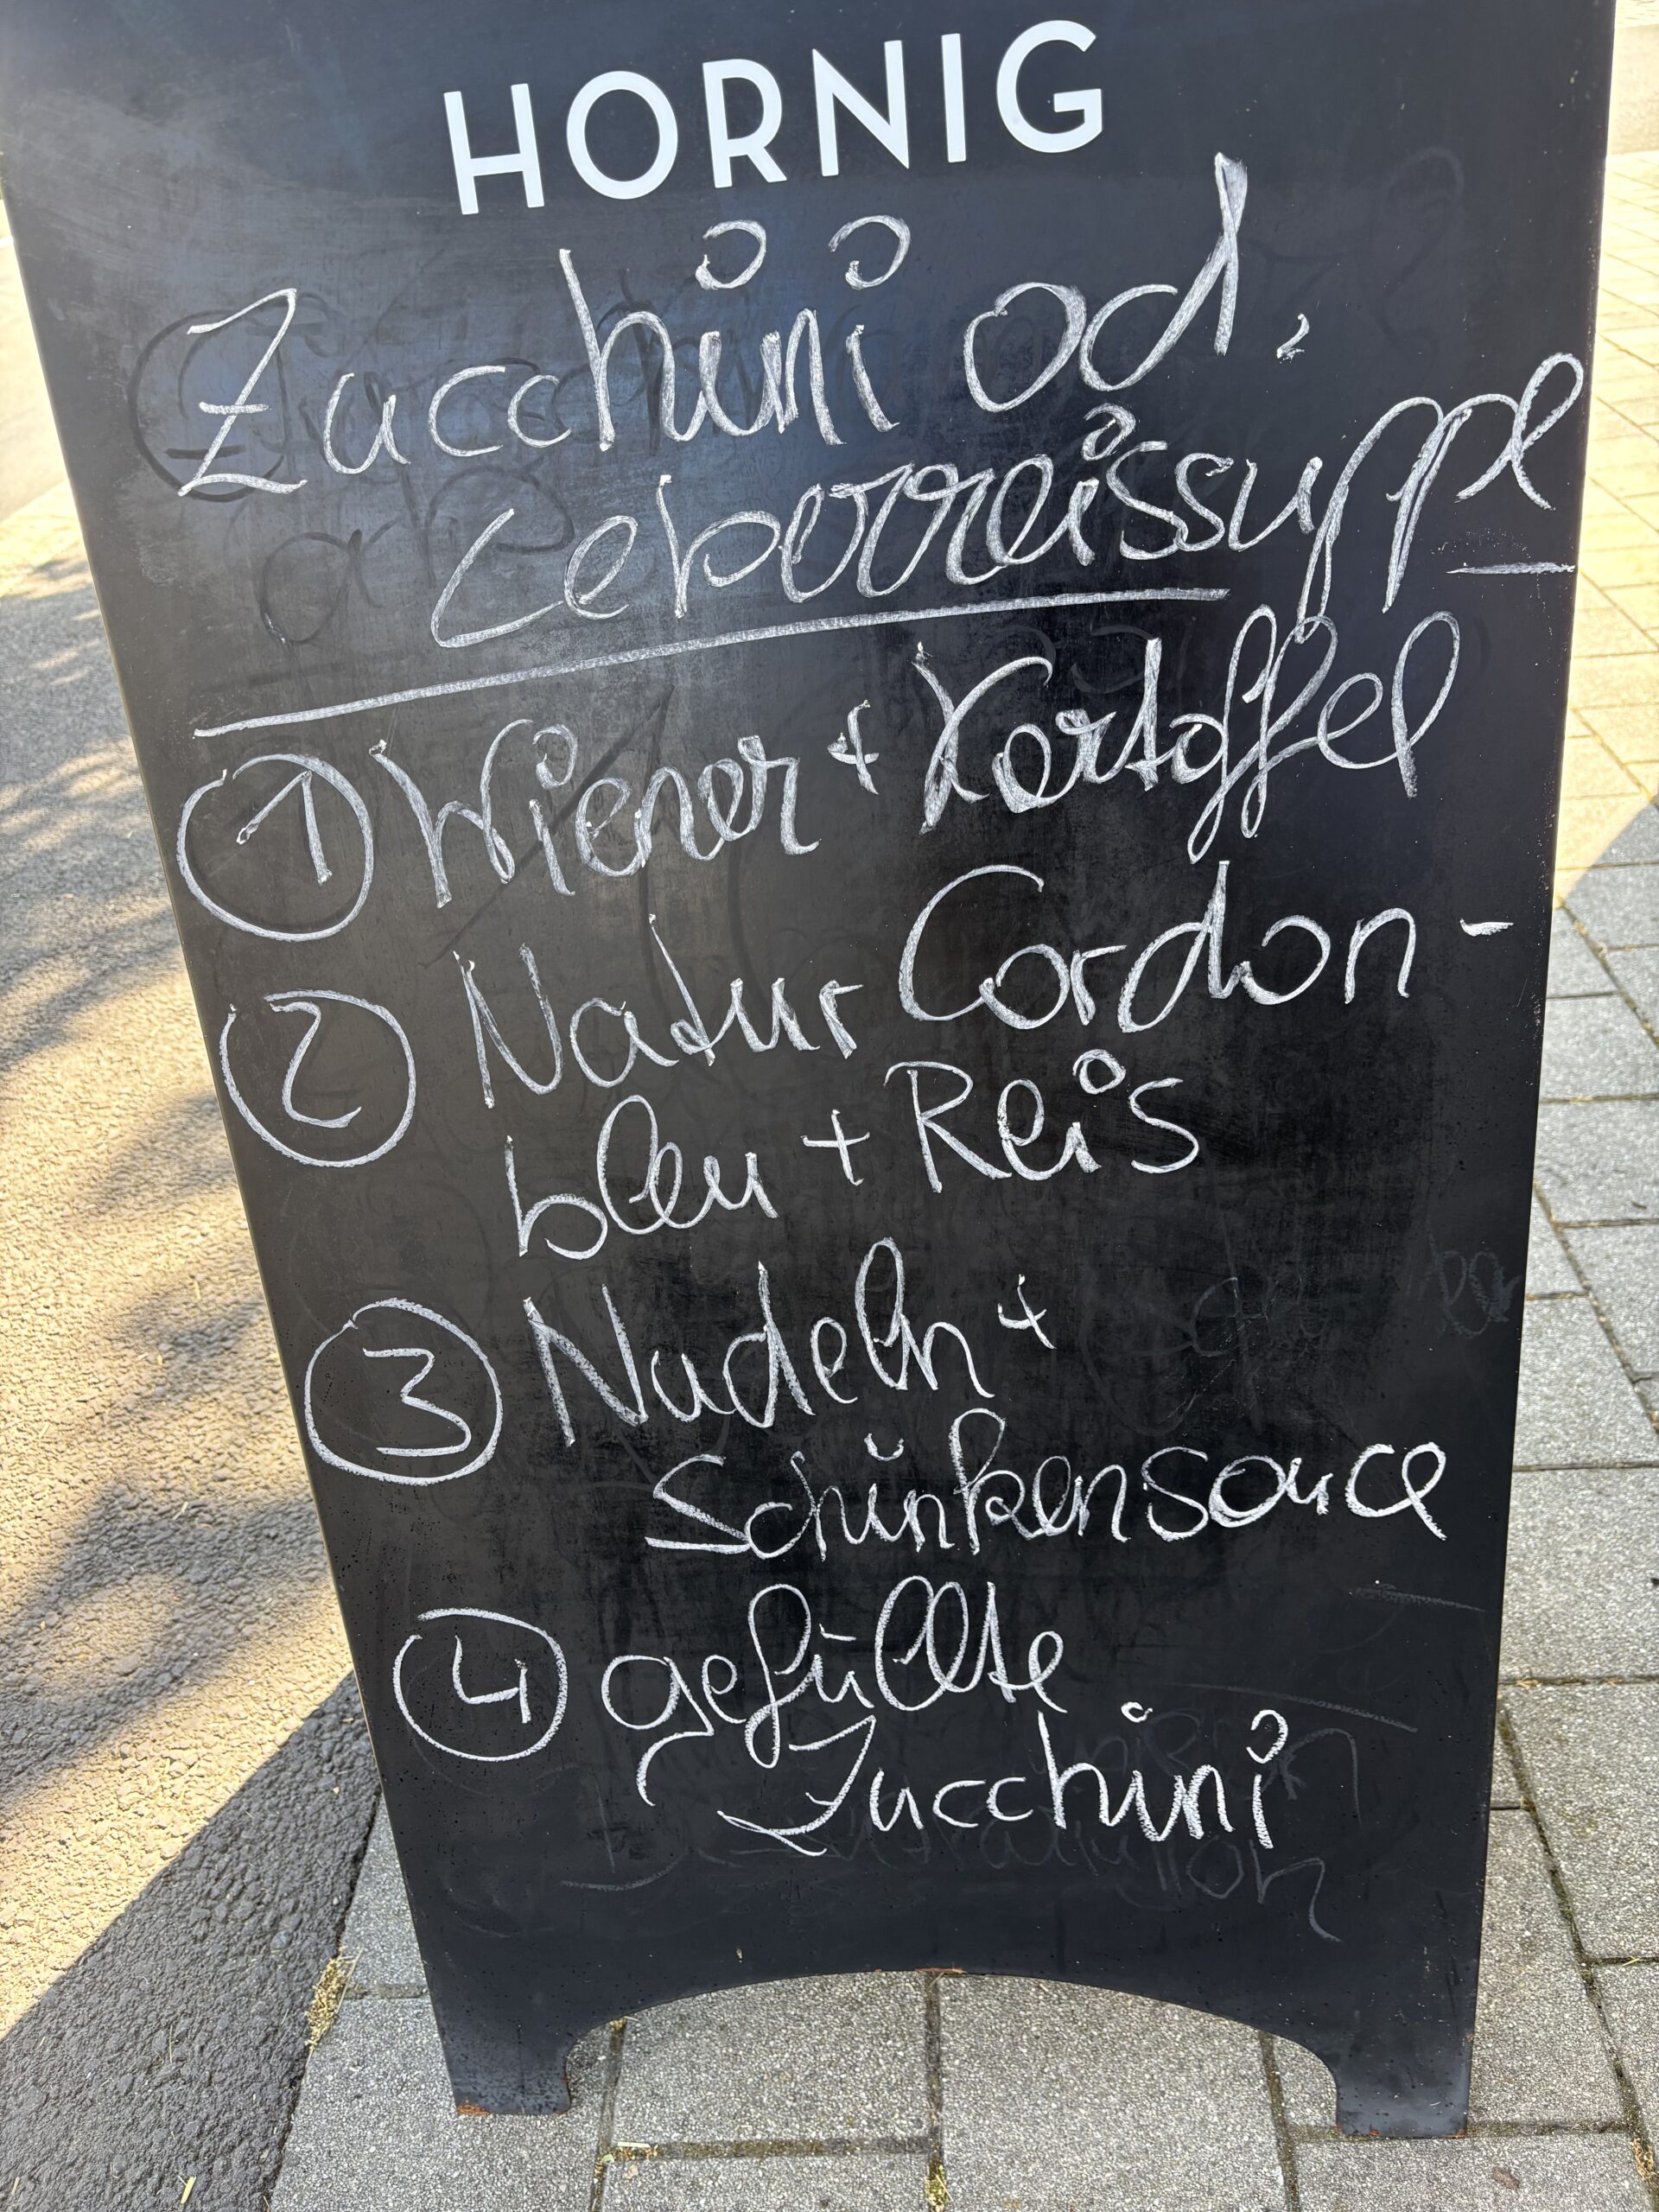 HORNIG
Zucchini od.
Leberreissuppe
1 Wiener + Kartoffel
2 Natur Cordon-
bleu + Reis
3 Nudeln +
Schinkensauce
4 gefüllte
Zucchini